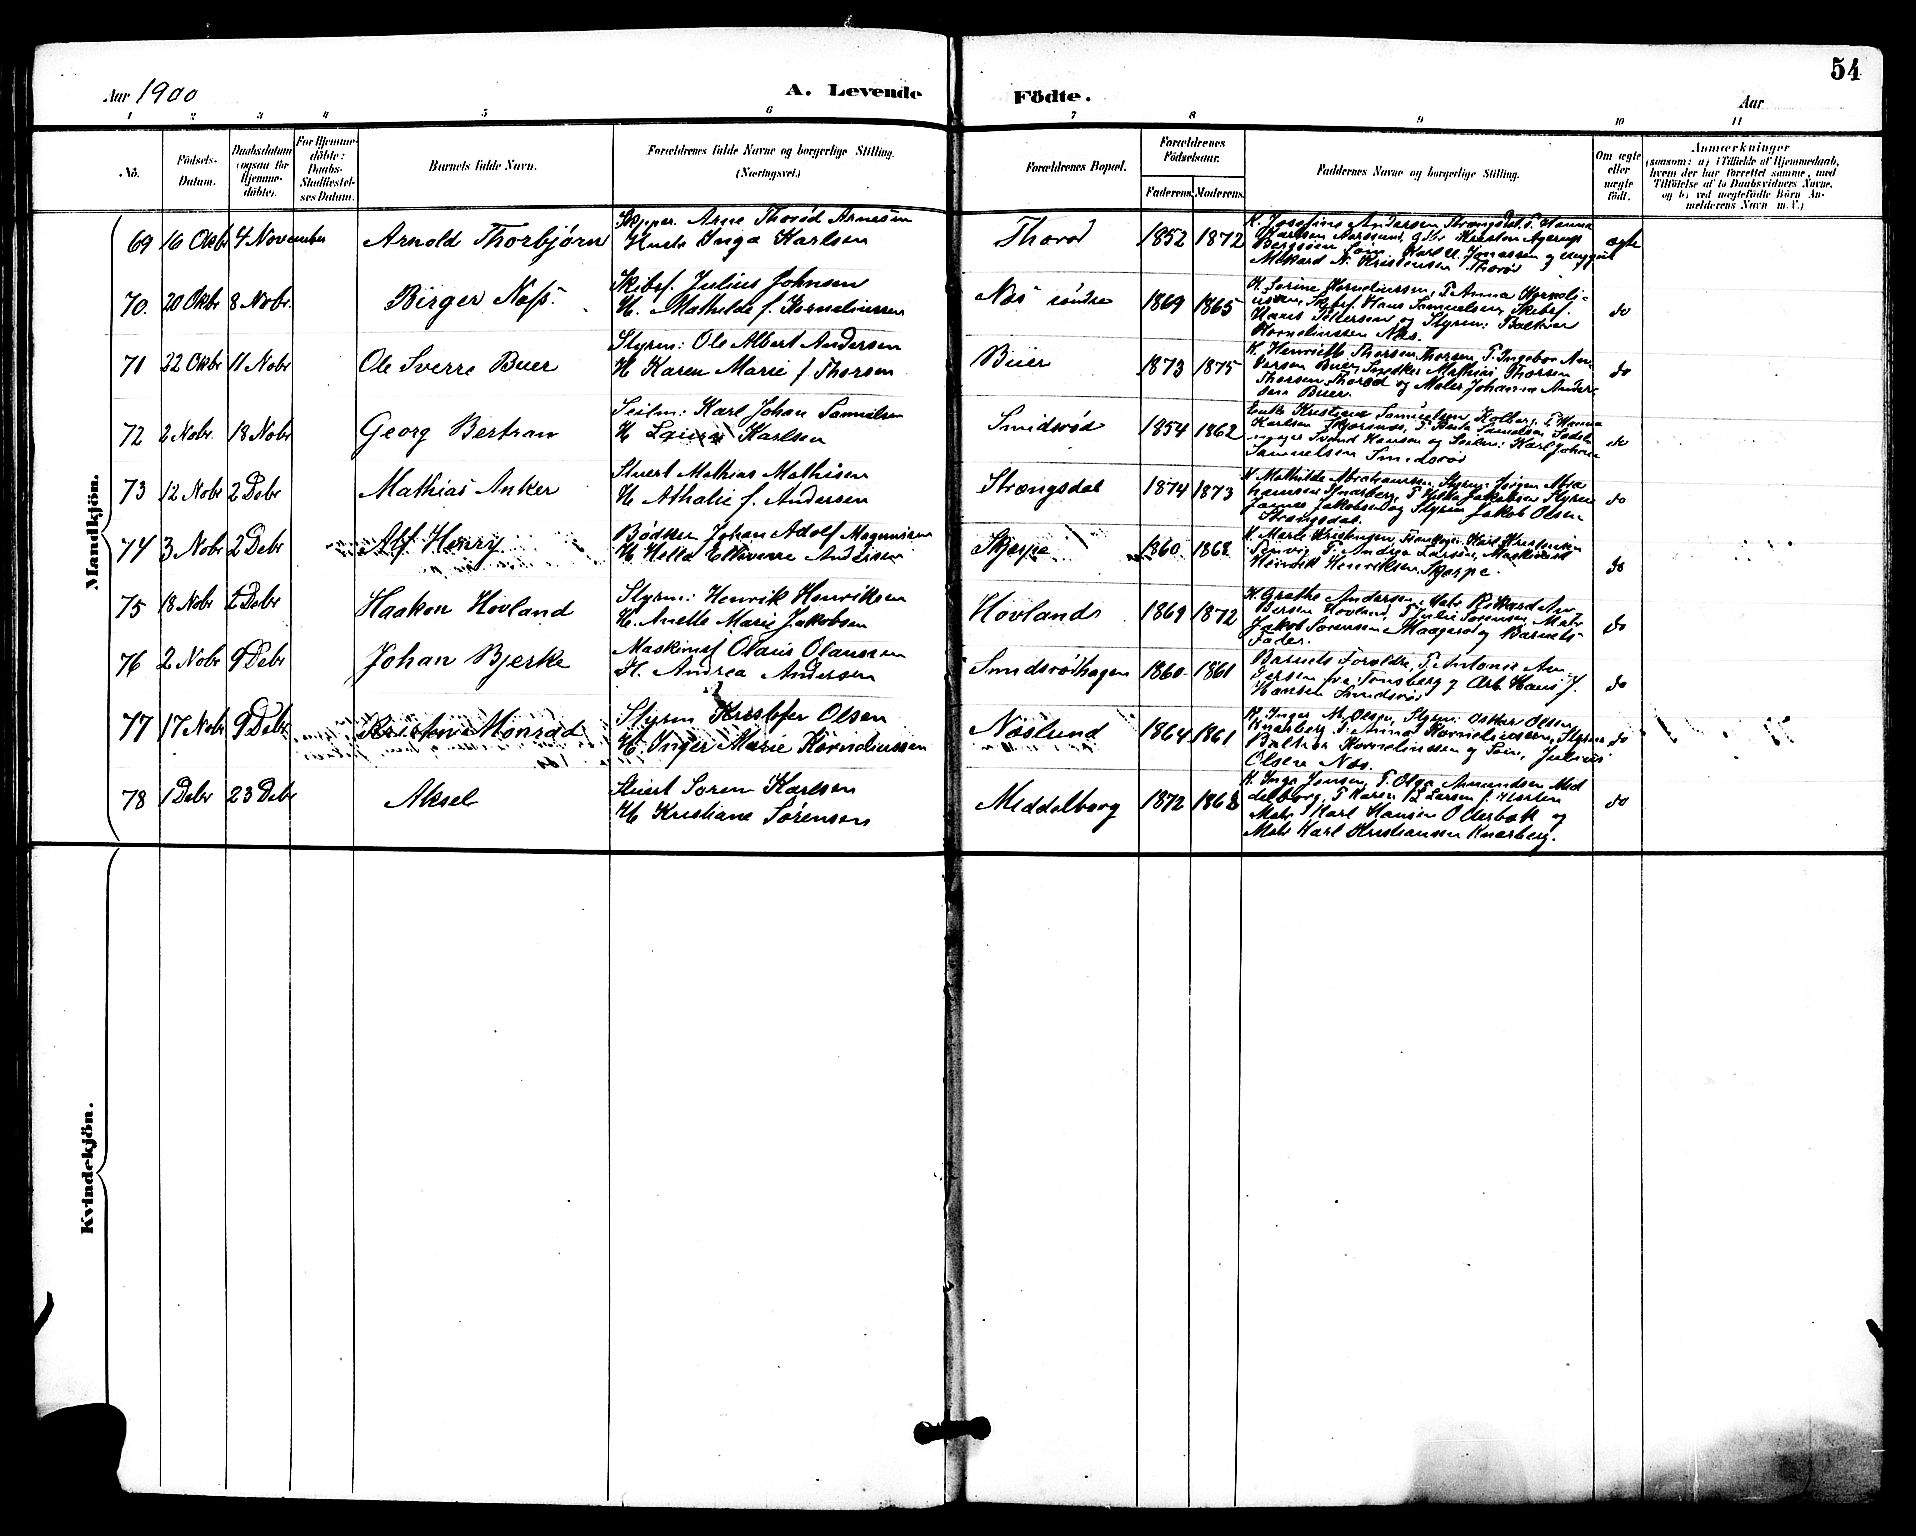 Aar 1900
A. Levende Födte.
Aar
54
1 2 3 4 5 6 7 8 9 10 11
No.
Födsels-Datum.
Daabsdatum (ogsaa for Hjemme-döbte).
For Hjemme-döbte: Daabs-Stadfæstel-ses Datum.
Barnets fulde Navn.
Forældrenes fulde Navne og borgerlige Stilling. (Næringsvei.)
Forældrenes Bopæl.
Forældrenes Födselsaar.
Faderens. Moderens.
Faddernes Navne og borgerlige Stilling.
Om ægte eller uægte födt.
Anmærkninger
(saasom: a) i Tilfælde af Hjemmedaab, hvem der har forrettet samme, med Tilföielse af to Daabsvidners Navne, og b) ved uægtefödte Börn An-melderens Navn m. V.)
Mandkjön.
69 16 Oktbr 4 November Arnold Thorbjørn
Skipper Arne Thorød Arnesen
Hustr Inga Karlsen
Thorød 1852 1872
K. Josefine Andersen Strengsdal, P. Hanna
Karlsen Aarsund
Thorød
ægte
70. 20 Oktbr 8 Nobr. Birger Næss.
Skibsf. Julius Johnsen
H. Mathilde f. Korneliussen
Næs söndre 1869 1865
K. Serine Korneliussen, P. Anna Korneli-
ussen, Skibsf. Hans Samuelsen, Skibsf.
Hans Pettersen og Styrm: Baltzer
Korneliussen Næs.
do
71 22 Oktbr 11 Nobr Ole Sverre Buer
Styrm: Ole Albert Andersen
H Karen Marie f Thorsen
Buer 1873 1875
K. Henriette Thorsen Thorsen, P. Ingebor An-
dersen Buer, Snedker Mathias Thorsen
Thorsen Thorød og Maler Johannes Ander-
sen Buer.
do
72 2 Nobr. 18 Nobr Georg Bertran
Seilm: Karl Johan Samuelsen
H Karlsen
Smidsrød 1854 1862
Enke Kristiane Samuelsen P. Hanna
Karlsen
Svend Hansen og Karl Johan
Samuelsen Smidsrød
do
73 12 Nobr 2 Debr Mathias Anker
Stuert Mathias Mathisen
H Athalie f. Andersen
Strængsdal 1874 1873
K Mathilde Abrahamsen, Styrm: Jörgen Abra
hamsen Knarberg, P Hilda Jakobsen Styrm
Jakobsen og Styrm Jakob Olsen
Strængsdal.
do
74 3 Nobr 2 Debr Alf Henry
Bødker Johan Adolf Magnussen
H. Andersen
Skjerpe 1860 1868
K. Marte Kristensen, Karl Kristensen
P. Andrea Larsen, Maskinist
Henrik Henriksen Skjerpe.
do
75 18 Nobr Debr Haakon Hovland
Styrm: Henrik Henriksen
H. Anette Marie Jakobsen
Hovland 1869 1872
K. Grethe Andersen, Matr Rikard An-
dersen Hovland, P Julie Sörensen, Matr
Jakob Sörensen Maagerö og Barnets
Fader.
do
76 2 Nobr 9 Debr Johan Bjerke
Maskinist Olaus Olaussen
H. Andrea Andersen
Smidsrødhagen 1860 1861
Barnets Forældre, P. Antonie An-
dersen Tønsberg og Arb. Hans J.
Hansen Smidsrød
do
77 17 Nobr 9 Debr Monrad
Styrm Kristofer Olsen
H. Inger Marie Korneliussen
Næslund 1864 1861
K. Inger M. Olsen, Styrm: Oskar Olsen
Knarberg, P. Anna Korneliussen, Styrm
Baltzer Korneliussen og Julius
Olsen Næs.
do
78 1 Debr 23 Debr Aksel
Stuert Sören Karlsen
H Kristiane Sørensen
Meddelborg 1872 1868
K. Inga Jensen, P. Olga Amundsen Med
delborg, P Karen L Larsen f. Horten
Matr Karl Hansen Oterbæk og
Matr Karl Kristiansen Knarberg.
do
Kvindekjön.